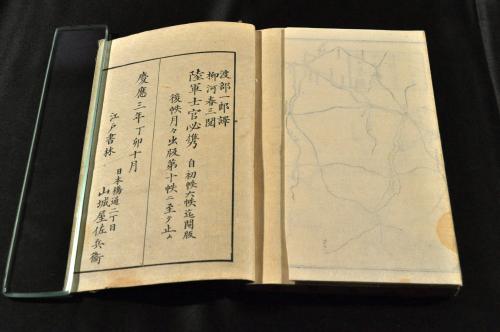 渡部一郎譯
柳河春三閲
陸軍士官必携 自初帙六帙迄開版
後帙月々出版第十帙ニ至テ止ム
慶應三年丁卯十月
江戸書林 日本橋通二丁目
山城屋佐兵衛